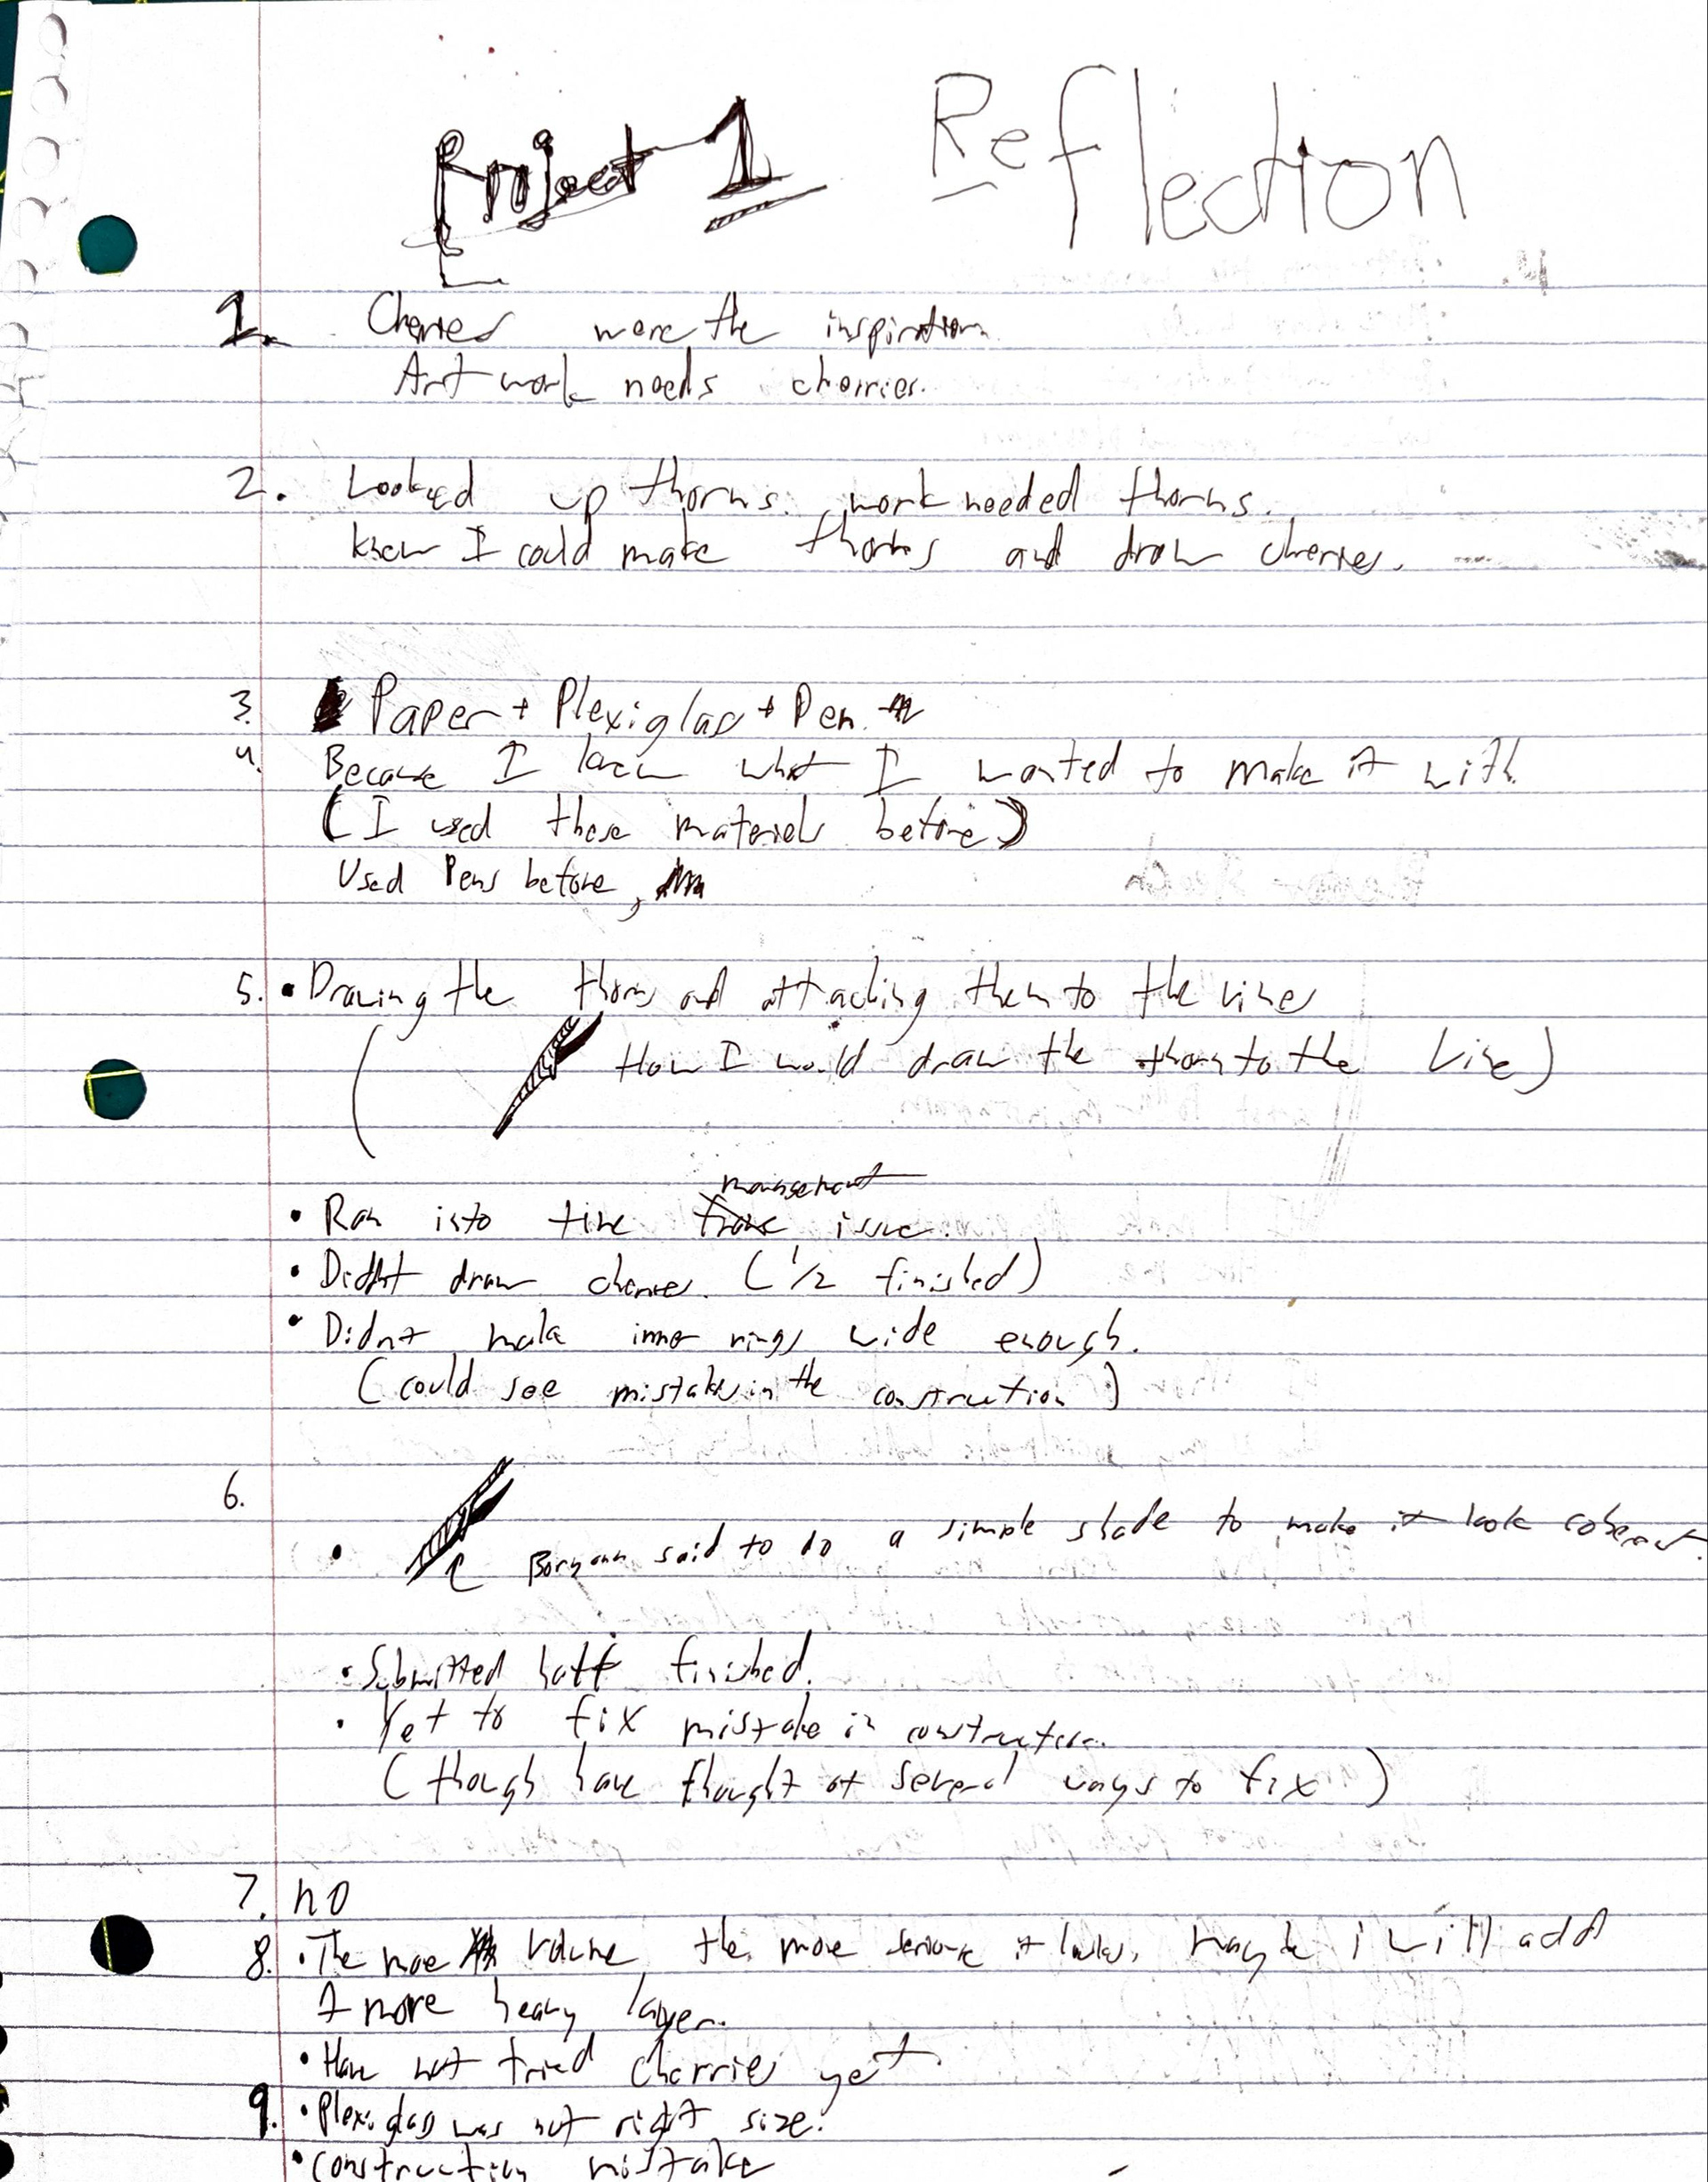 Project 1 Reflection
1. Cherries were the inspiration.
Art work needs cherries.
2. Looked up thorns. work needed thorns.
Knew I could make thorns and draw cherries.
3. Paper + Plexiglass + Pen.
4. Because I knew what I wanted to make it with.
(I used these materials before)
Used Pens before,
5. • Drawing the thorns and attaching them to the vines
( How I would draw the thorns to the vine)
management
• Ran into time issue.
• Didn't draw cherries. (1/2 finished)
• Didn't make inner rings wide enough.
(could see mistakes in the construction)
6.
• said to do a simple shade to make it look coherent.
• Submitted half finished.
• Yet to fix mistake in construction.
(though have thought of several ways to fix)
7. no
8. • The more volume the more serious it looks. Maybe i will add
1 more heavy layer.
• Have not tried cherries yet
9. • Plexiglass was not right size.
• construction mistake